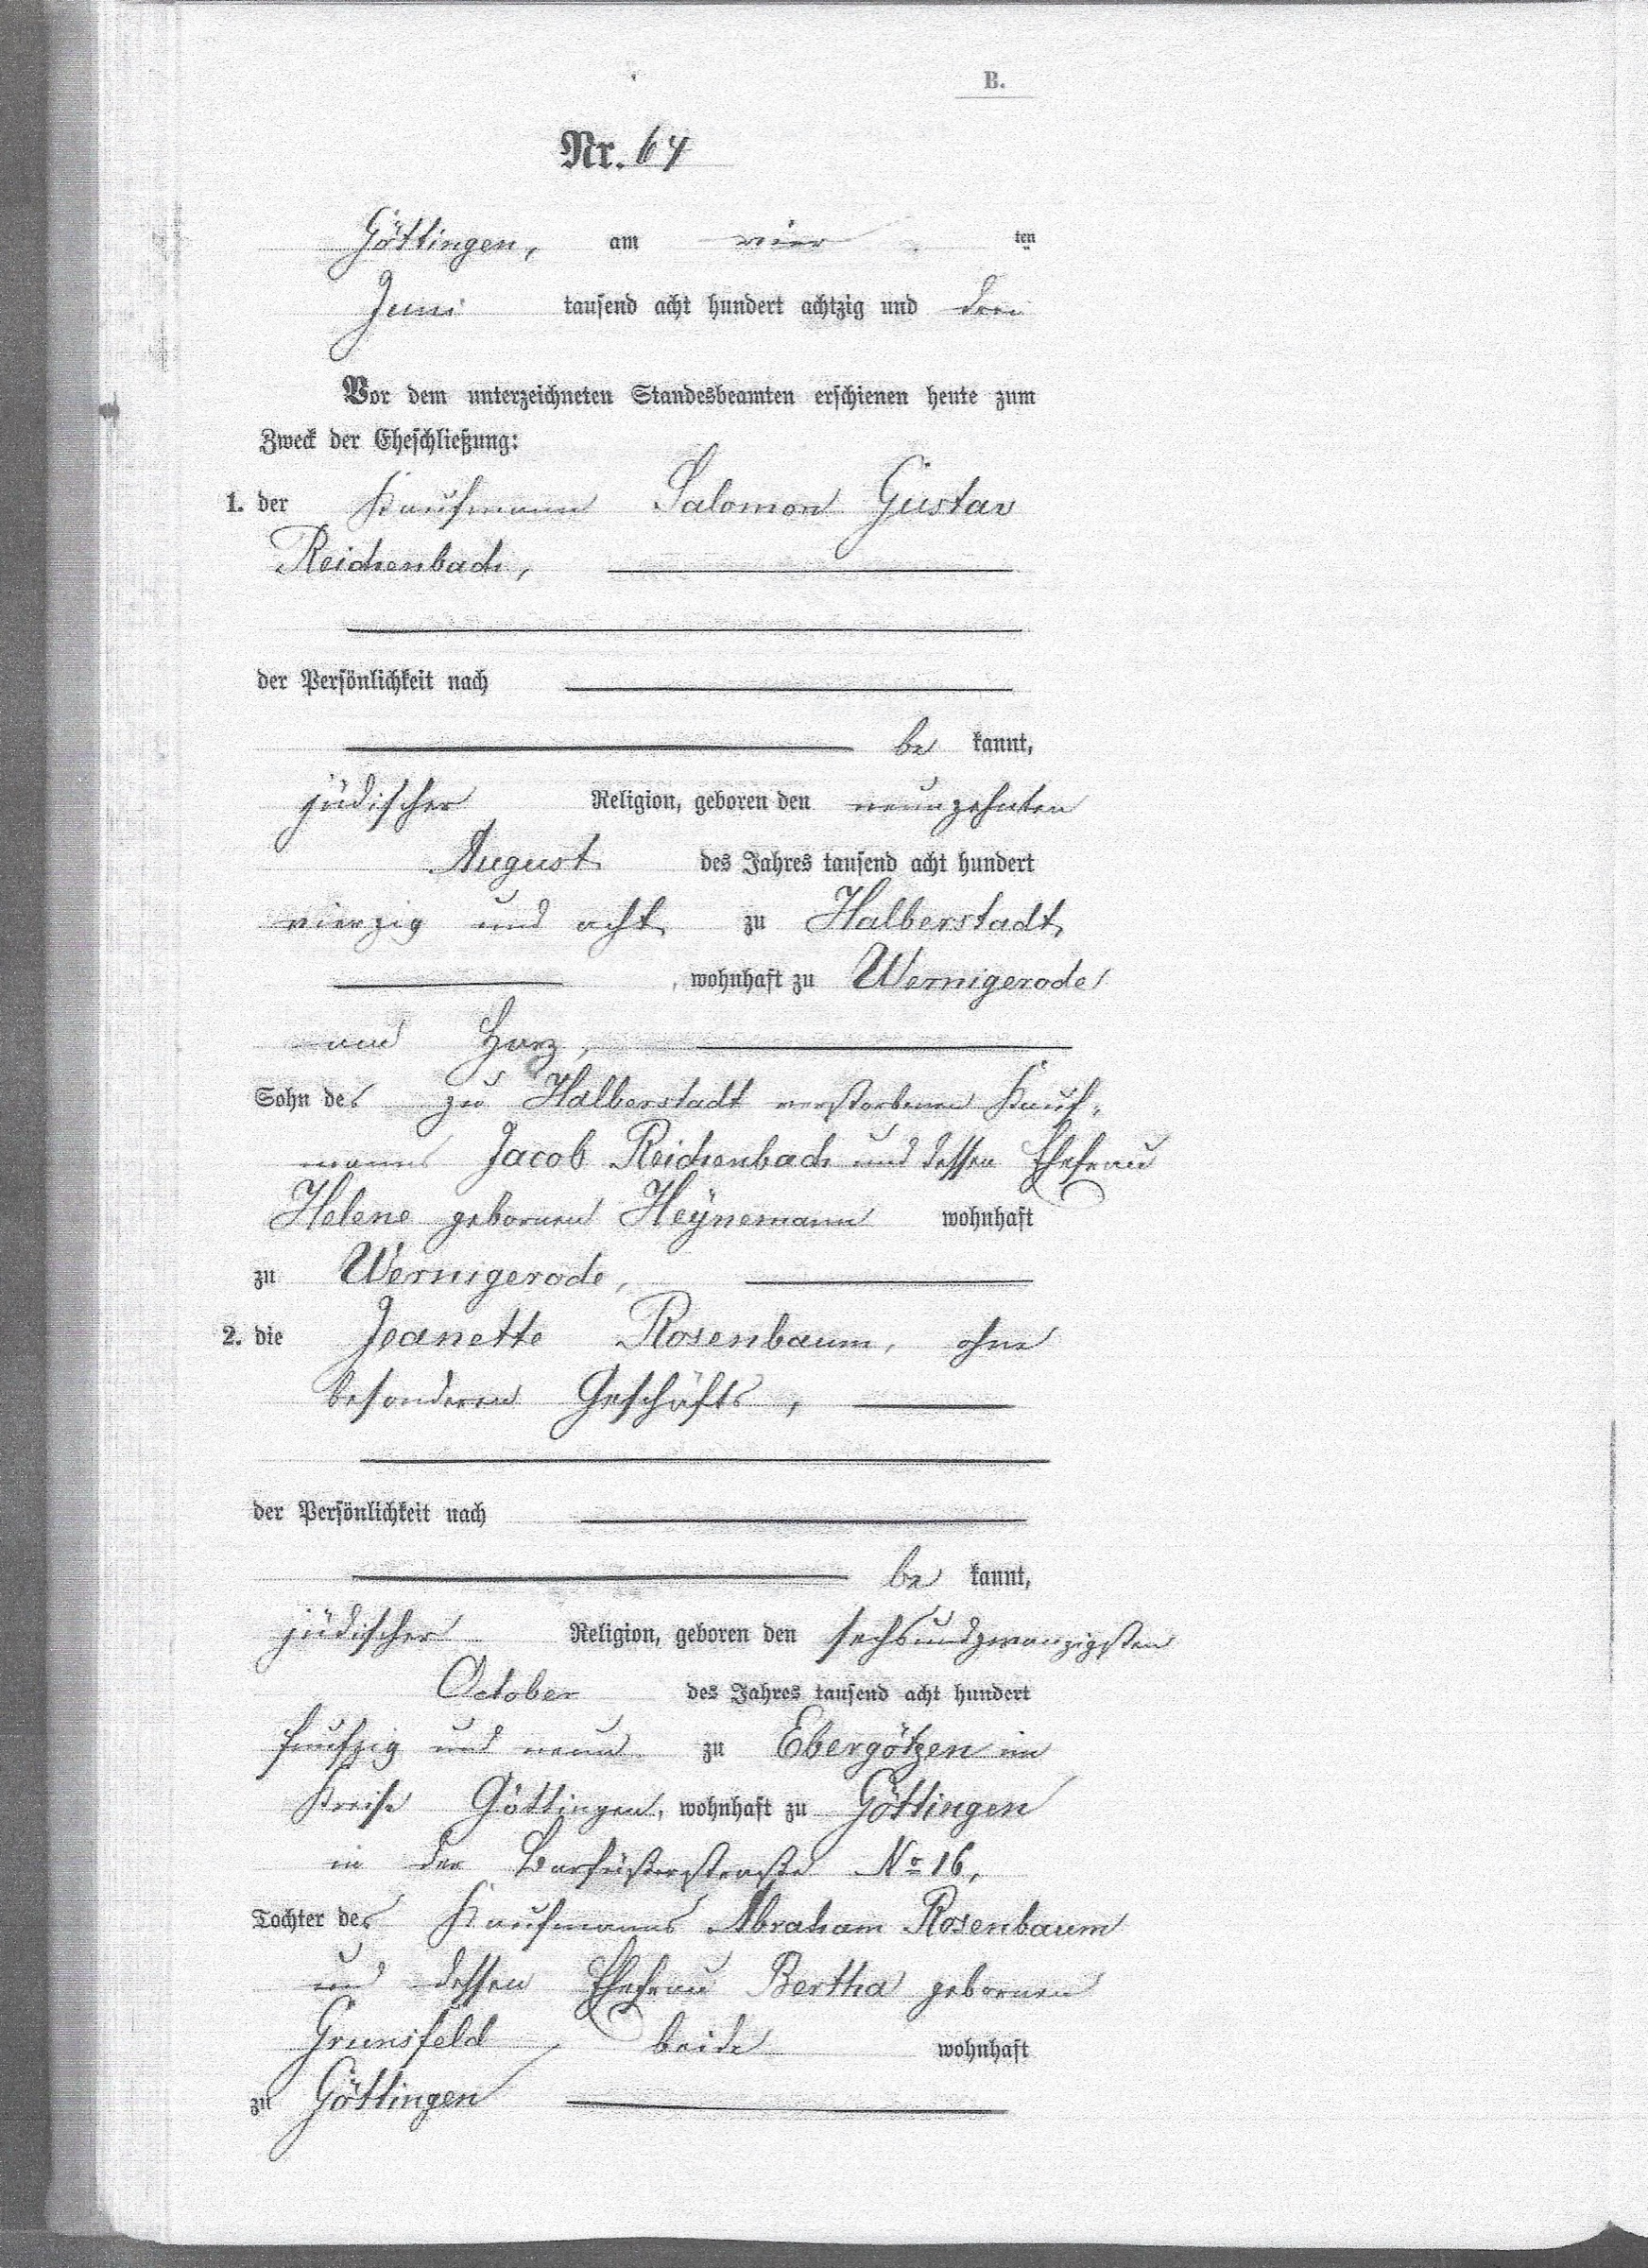 B.
Nr. 64
Göttingen, am vier ten
Juni tausend acht hundert achtzig und drei
Vor dem unterzeichneten Standesbeamten erschienen heute zum
Zweck der Eheschließung:
1. der Kaufmann Salomon Gustav
Reichenbach,
der Persönlichkeit nach
be kannt,
jüdischer Religion, geboren den neunzehnten
August des Jahres tausend acht hundert
vierzig und acht zu Halberstadt,
, wohnhaft zu Wernigerode
am Harz,
Sohn des zu Halberstadt verstorbenen Kauf-
manns Jacob Reichenbach und dessen Ehefrau
Helene gebornen Heÿnemann wohnhaft
zu Wernigerode,
2. die Jeanette Rosenbaum, ohne
besonderen Geschäfts,
der Persönlichkeit nach
be kannt,
jüdischer Religion, geboren den sechsundzwanzigsten
October des Jahres tausend acht hundert
funfzig und neun zu Ebergötzen im
Kreise Göttingen, wohnhaft zu Göttingen
in der Barfüßerstraße No 16,
Tochter des Kaufmanns Abraham Rosenbaum
und dessen Ehefrau Bertha gebornen
Grunsfeld, beide wohnhaft
zu Göttingen